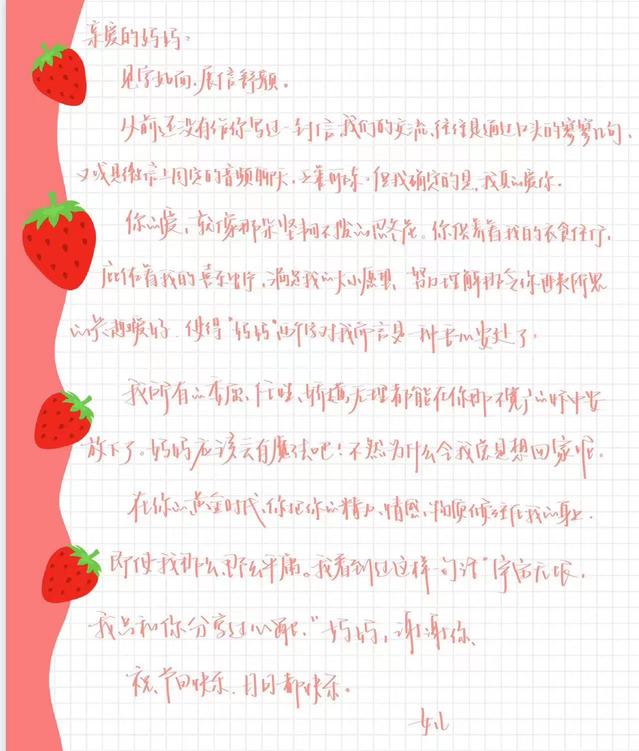 亲爱的妈妈：
见字如面，展信舒颜。
从前还没有给你写过一封信，我们的交流，往往是通过口头的寥寥几句，
又或是微信上固定的音频聊天，但我确定的是，我真的爱你。
你的爱，就像那朵坚韧不拔的忍冬花。你供养着我的衣食住行，
庇佑着我的喜怒哀乐，满足我的大小愿望，努力理解那令你匪夷所思
的兴趣爱好，使得"妈妈"两个字对我而言是一种吾心安处了。
我所有的委屈、任性、骄横无理都能在你那不宽的怀中安
放下了。妈妈应该会有魔法吧！不然为什么会我总是想回家呢。
在你的黄金时代，你把你的精力、情感、物质倾注在我的身上，
即使我那么那么平庸。我看到过这样一句话"宇宙无垠，
我只和你分享过心脏。"妈妈，谢谢你、
祝，节日快乐，日日都快乐。
女儿